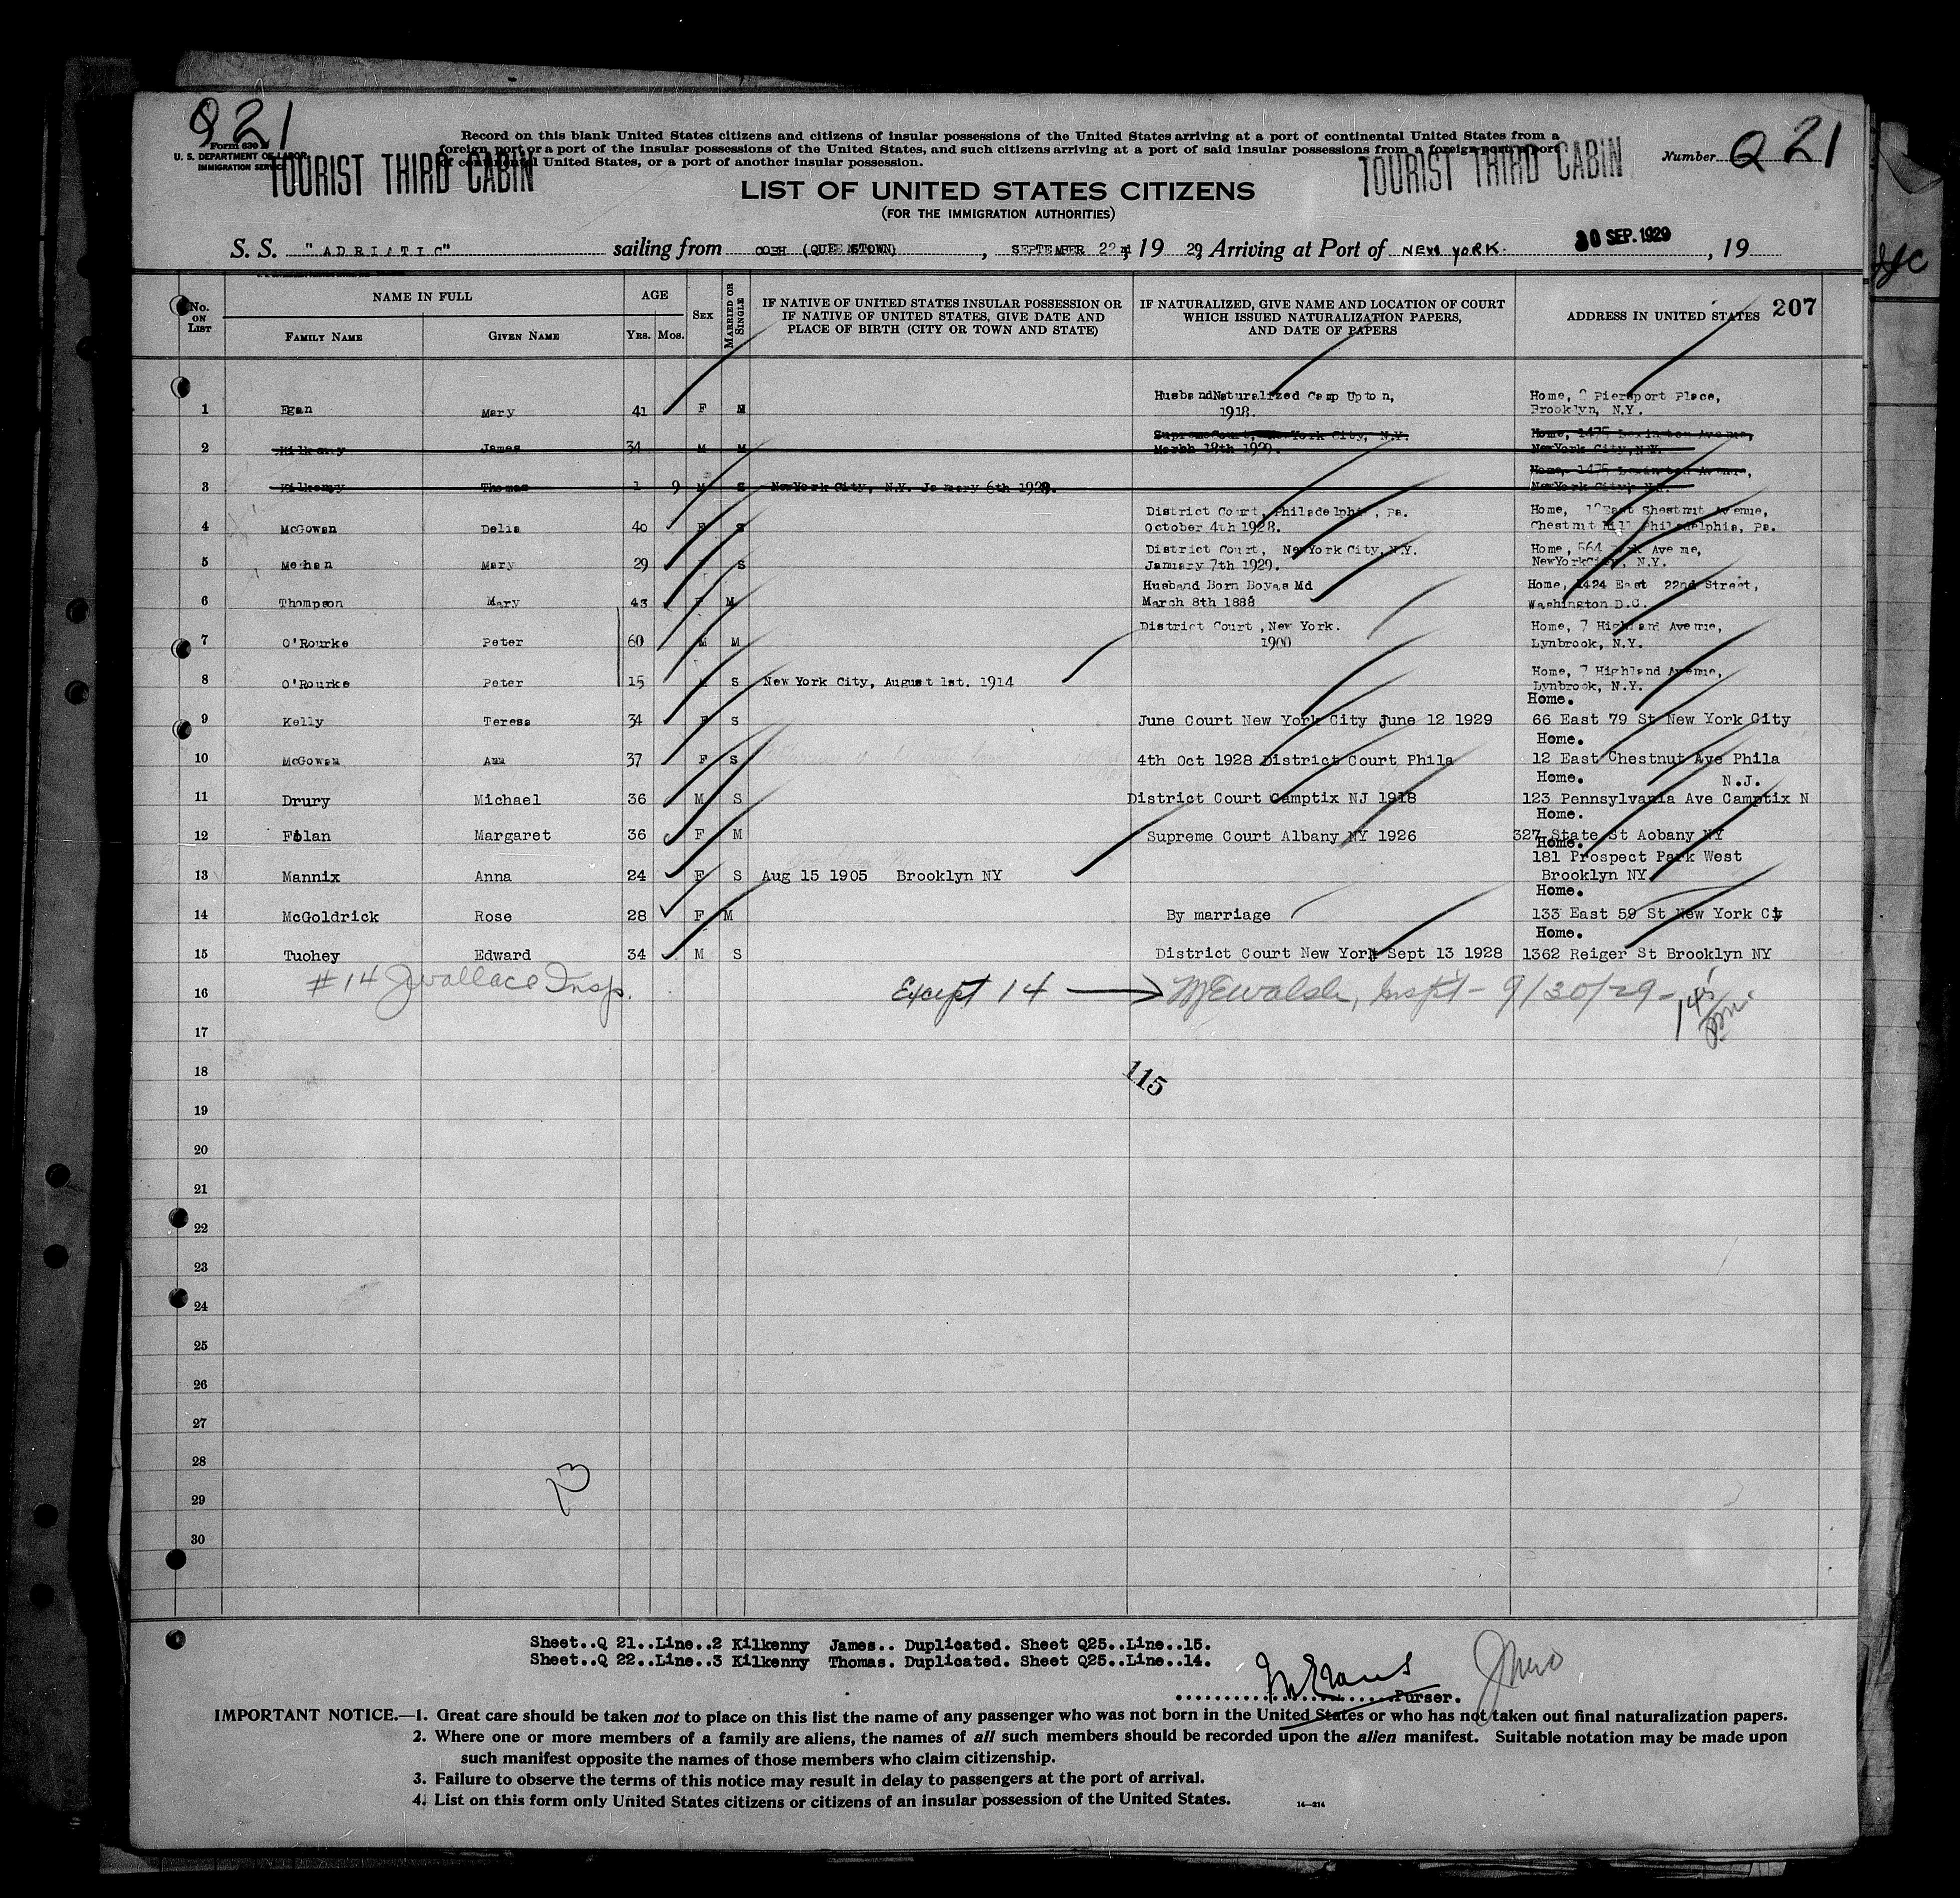 Q21
Form 630
U. S. DEPARTMENT OF LABOR
IMMIGRATION SERVICE
TOURIST THIRD CABIN
Record on this blank United States citizens and citizens of insular possessions of the United States arriving at a port of continental United States from a
foreign port or a port of the insular possessions of the United States, and such citizens arriving at a port of said insular possessions from a foreign port, a port
of continental United States, or a port of another insular possession.
TOURIST THIRD CABIN
Number Q 21
LIST OF UNITED STATES CITIZENS
(FOR THE IMMIGRATION AUTHORITIES)
S. S. "ADRIATIC" sailing from COBH (QUEENSTOWN), SEPTEMBER 22nd 19 29, Arriving at Port of NEW YORK. 30 SEP. 1929, 19
No. ON LIST
NAME IN FULL
FAMILY NAME
GIVEN NAME
AGE
YRS. MOS.
SEX
MARRIED OR SINGLE
IF NATIVE OF UNITED STATES INSULAR POSSESSION OR
IF NATIVE OF UNITED STATES, GIVE DATE AND
PLACE OF BIRTH (CITY OR TOWN AND STATE)
IF NATURALIZED, GIVE NAME AND LOCATION OF COURT
WHICH ISSUED NATURALIZATION PAPERS,
AND DATE OF PAPERS
ADDRESS IN UNITED STATES 207
HusbandNaturalized Camp Upton, Home, Pierepont Place,
1 Egan Mary 41 F M 1918. Brooklyn, N.Y.
SupremeCourt, NewYork City, N.Y. Home, 1475 Lexington Avenue,
2 Kilkenny James 34 M M March 18th 1929. NewYork City, N.Y.
Home, 1475 Lexington Avenue,
3 Kilkenny Thomas 1 9 M S NewYork City, N.Y. January 6th 1928. NewYork City, N.Y.
District Court, Philadelphia, Pa. Home, 12East Chestnut Avenue,
4 McGowan Delia 40 F S October 4th 1928. Chestnut Hill Philadelphia, Pa.
District Court, NewYork City, N.Y. Home, 564 Park Avenue,
5 Meehan Mary 29 S January 7th 1929. NewYorkCity, N.Y.
Husband Born Boyas Md Home, 1424 East 22nd Street,
6 Thompson Mary 43 F M March 8th 1888 Washington D.C.
District Court, New York. Home, 7 Highland Avenue,
7 O'Rourke Peter 60 M M 1900 Lynbrook, N.Y.
Home, 7 Highland Avenue,
8 O'Rourke Peter 15 M S New York City, August 1st. 1914 Lynbrook, N.Y.
Home.
9 Kelly Teresa 34 F S June Court New York City June 12 1929 66 East 79 St New York City
Home.
10 McGowan Ann 37 F S 4th Oct 1928 District Court Phila 12 East Chestnut Ave Phila
Home. N.J.
11 Drury Michael 36 M S District Court Camptix NJ 1918 123 Pennsylvania Ave Camptix N
Home.
12 Folan Margaret 36 F M Supreme Court Albany NY 1926 327 State St Aobany NY
Home.
181 Prospect Park West
13 Mannix Anna 24 F S Aug 15 1905 Brooklyn NY Brooklyn NY
Home.
14 McGoldrick Rose 28 F M By marriage 133 East 59 St New York Cty
Home.
15 Tuohey Edward 34 M S District Court New York Sept 13 1928 1362 Reiger St Brooklyn NY
#14 J Wallace Insp.
16 Except 14 → MEWalsh, Inspt - 9/30/29 -
17
18 115
19
20
21
22
23
24
25
26
27
28
29
30
Sheet..Q 21..Line..2 Kilkenny James.. Duplicated. Sheet Q25..Line..15.
Sheet..Q 22..Line..3 Kilkenny Thomas. Duplicated. Sheet Q25..Line..14.
Purser.
IMPORTANT NOTICE.—1. Great care should be taken not to place on this list the name of any passenger who was not born in the United States or who has not taken out final naturalization papers.
2. Where one or more members of a family are aliens, the names of all such members should be recorded upon the alien manifest. Suitable notation may be made upon
such manifest opposite the names of those members who claim citizenship.
3. Failure to observe the terms of this notice may result in delay to passengers at the port of arrival.
4. List on this form only United States citizens or citizens of an insular possession of the United States.
14—214